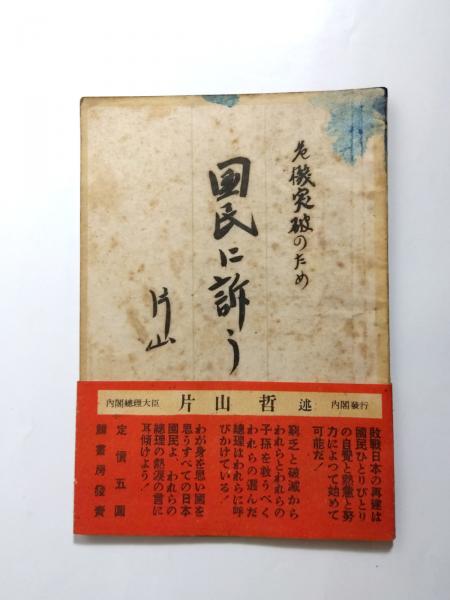 危機突破のため
国民に訴う
片山
内閣總理大臣 片山哲 述 内閣發行
敗戰日本の再建は
國民ひとりびとり
の自覺と熱意と努
力によつて始めて
可能だ！
窮乏と破滅から
われらとわれらの
子孫を救うべく
われらの選んだ
總理はわれらに呼
びかけている！
わが身を思い國を
思うすべての日本
國民よ、われらの
總理の熱涙の言に
耳傾けよう！
定價五圓
鱒書房發賣